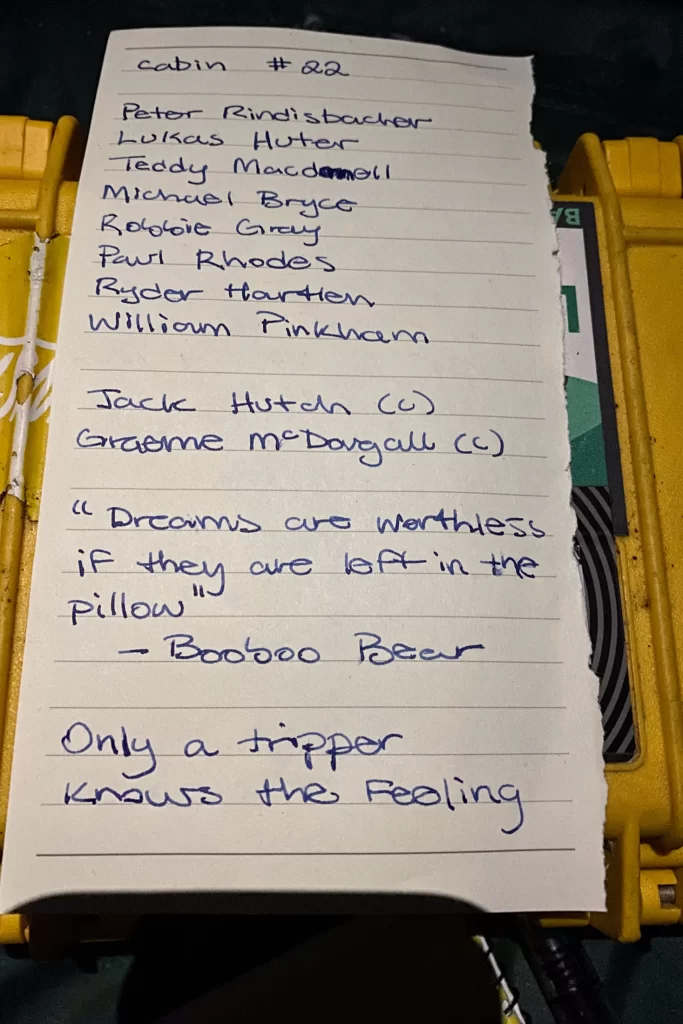 cabin # 22
Peter Rindisbacher
Lukas Huter
Teddy Macdonell
Michael Bryce
Robbie Gray
Paul Rhodes
Ryder Hartlen
William Pinkham
Jack Hutch (c)
Graeme McDougall (c)
"Dreams are worthless
if they are left in the
pillow"
- Booboo Bear
Only a tripper
knows the feeling
BA